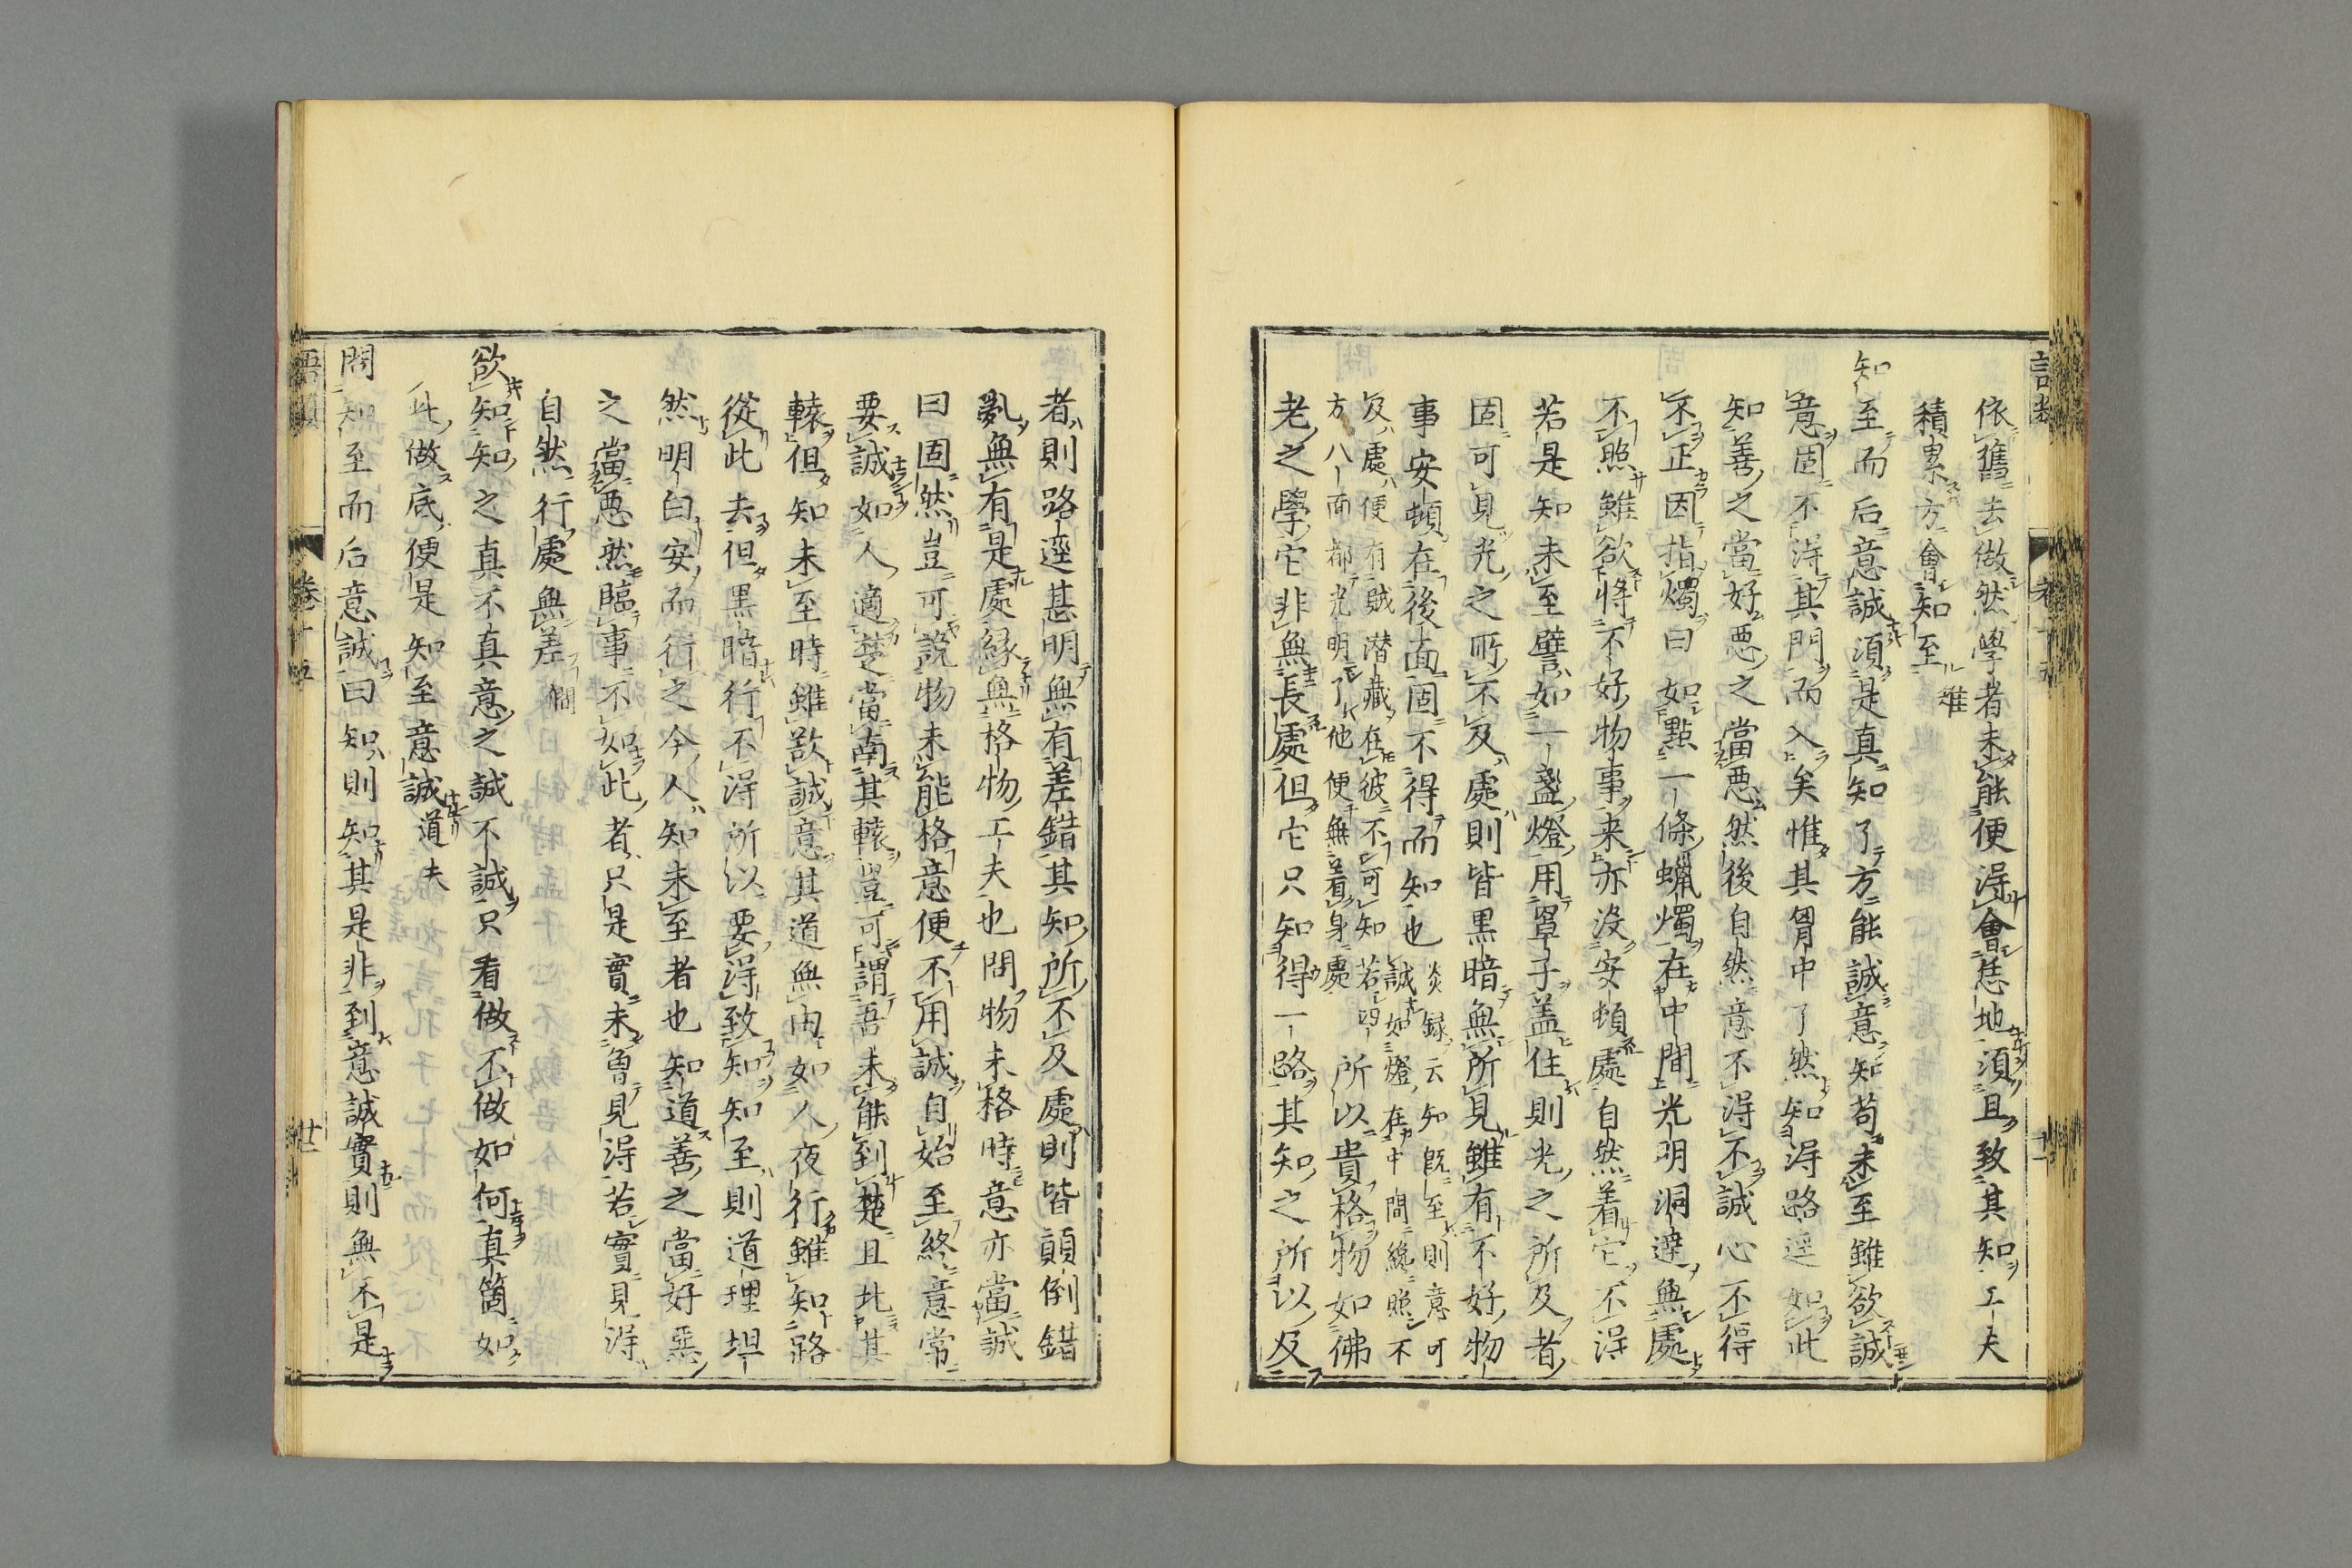 依舊去做然學者未能便得會恁地須且致其知工夫
積累方會知至 雉
知至而后意誠須是真知了方能誠意知苟未至雖欲誠
意固不得其門而入矣惟其胷中了然知得路逕如此
知善之當好惡之當惡然後自然意不得不誠心不得
不正因指燭曰如點一條蠟燭在中間光明洞達無處
不照雖欲將不好物事来亦没安頓處自然着它不得
若是知未至譬如一盞燈用罩子盖住則光之所及者
固可見光之所不及處則皆黒暗無所見雖有不好物
事安頓在後面固不得而知也 炎録云知既至則意可
誠如燈在中間纔照不
及處便有賊潜藏在彼不可知若四
方八面都光明了他便無着身處
所以貴格物如佛
老之學它非無長處但它只知得一路其知之所以及
者則路逕甚明無有差錯其知所不及處則皆顛倒錯
亂無有是處縁無格物工夫也問物未格時意亦當誠
曰固然豈可説物未能格意便不用誠自始至終意常
要誠如人適楚當南其轅豈可謂吾未能到楚且北其
轅但知未至時雖欲誠意其道無由如人夜行雖知路
從此去但黒暗行不得所以要得致知知至則道理坦
然明白安而行之今人知未至者也知道善之當好惡
之當惡然臨事不如此者只是實未曽見得若實見得
自然行處無差 僩
欲知知之真不真意之誠不誠只看做不做如何真箇如
此做底便是知至意誠 道夫
問知至而后意誠曰知則知其是非到意誠實則無不是
卷十五
廿